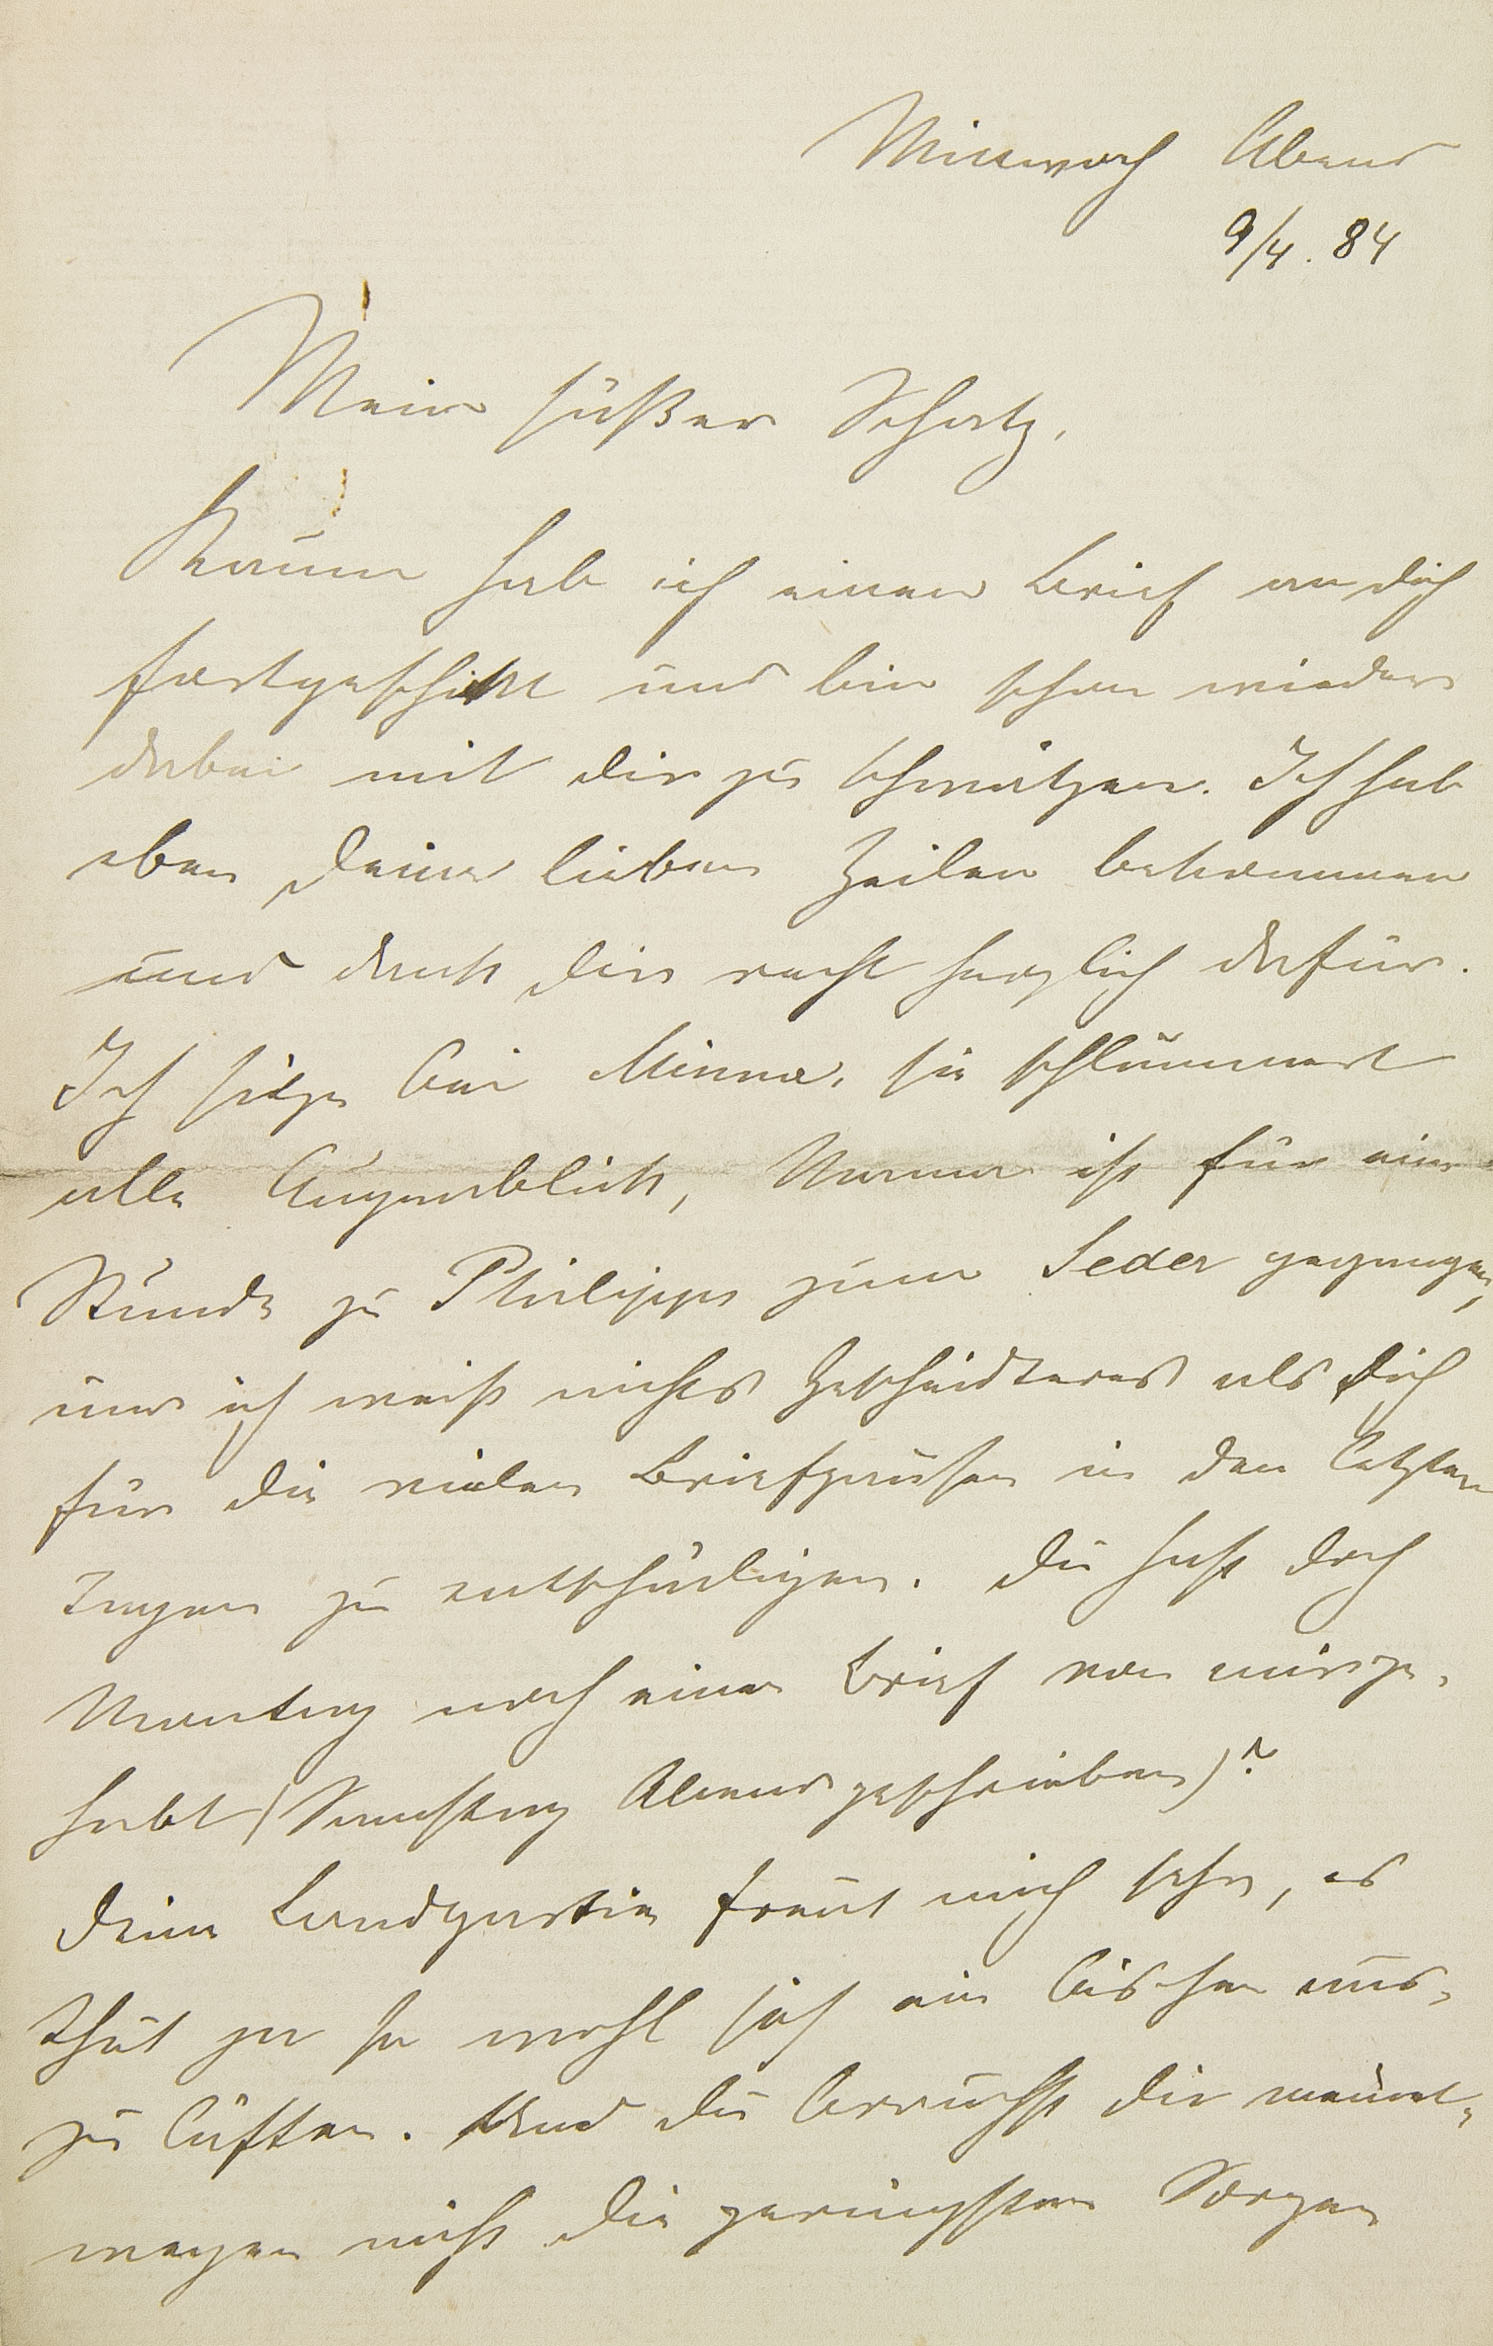 Mittwoch Abend
9/4. 84
Mein süßer Schatz,
Kaum hab ich einen Brief an dich
fortgeschickt und bin schon wieder
dabei mit dir zu schwätzen. Ich hab
eben Deine lieben Zeilen bekommen
und dank dir recht herzlich dafür.
Ich sitze bei Minna, sie schlummert
alle Augenblick, Mama ist für eine
Stunde zu Philipps zum Seder gegangen,
und ich weiß nichts Gescheidteres als Dich
für die vielen Briefpausen in den letzten
Tagen zu entschädigen. Du hast doch
Montag noch einen Brief von mir ge-
habt (Samstag Abend geschrieben)?
Deine Landpartie freut mich sehr, es
thut ja so wohl sich ein bischen aus-
zu lüften. Und du brauchst dir meinet-
wegen nicht die geringsten Sorgen